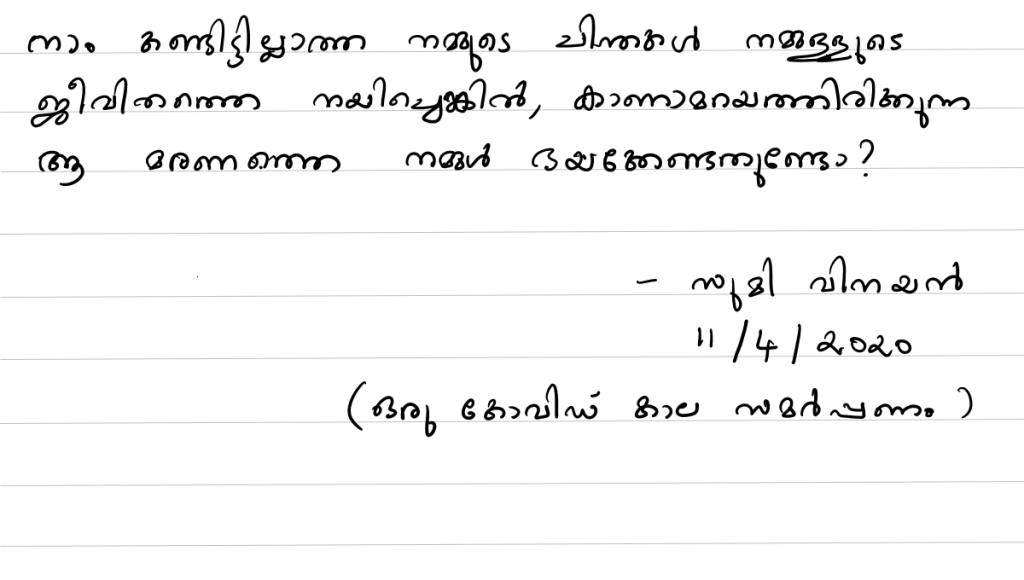 നാം കണ്ടിട്ടില്ലാത്ത നമ്മുടെ ചിന്തകൾ നമ്മളുടെ
ജീവിതത്തെ നയിപ്പെങ്കിൽ, കാണാമറയത്തിരിക്കുന്ന
ആ മരണത്തെ നമ്മൾ ഭയക്കേണ്ടതുണ്ടോ?
- സുമി വിനയൻ
11/4/2020
(ഒരു കോവിഡ് കാല സമർപ്പണം)